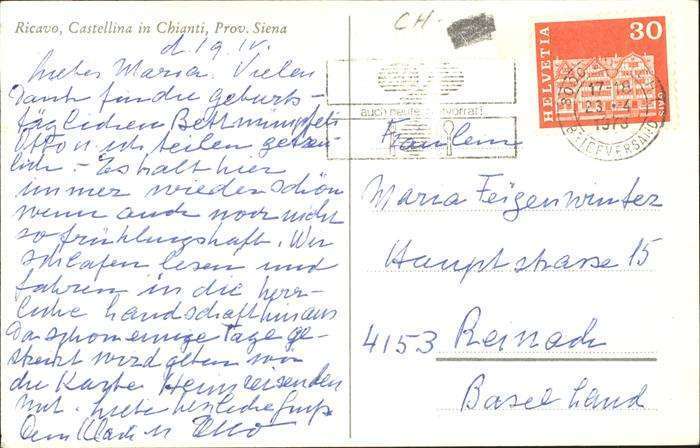 Ricavo, Castellina in Chianti, Prov. Siena
CH-
d. 19. IV.
Liebes Maria. Vielen
Dank für die geburts-
täglichen Bettmümpfeli
Otto u. ich teilen
lich. - Es ist hier
immer wieder schön
wenn auch noch nicht
so frühlingshaft. Wir
schlafen lesen und
fahren in die herr-
liche Landschaft hinaus
Da schon einige Tage ge-
streikt wird geben wir
die Karte Heimreisenden
mit. Liebe herzliche Grüsse
Otto
HELVETIA
30
auch heute Notvorrat!
17-18
23.-4.
BRIEFVERSAND
Fräulein
Maria Feigenwinter
Hauptstrasse 15
4153 Reinach
Baselland